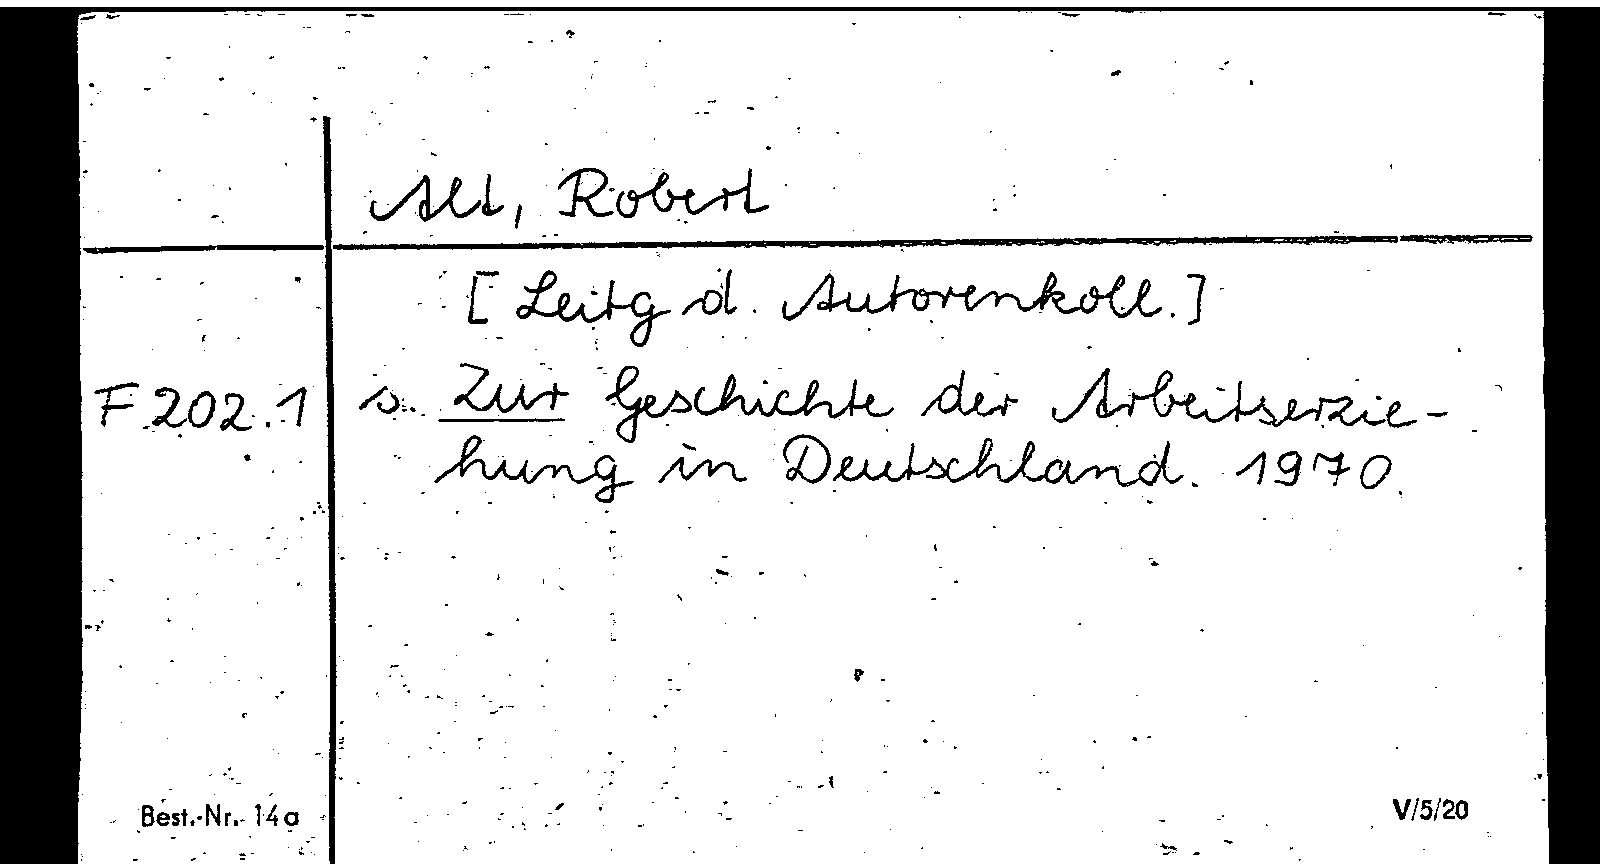 Alt, Robert
[Leitg d. Autorenkoll.]
F 202.1 s. Zur Geschichte der Arbeitserzie-
hung in Deutschland. 1970.
Best.-Nr. 14a V/5/20